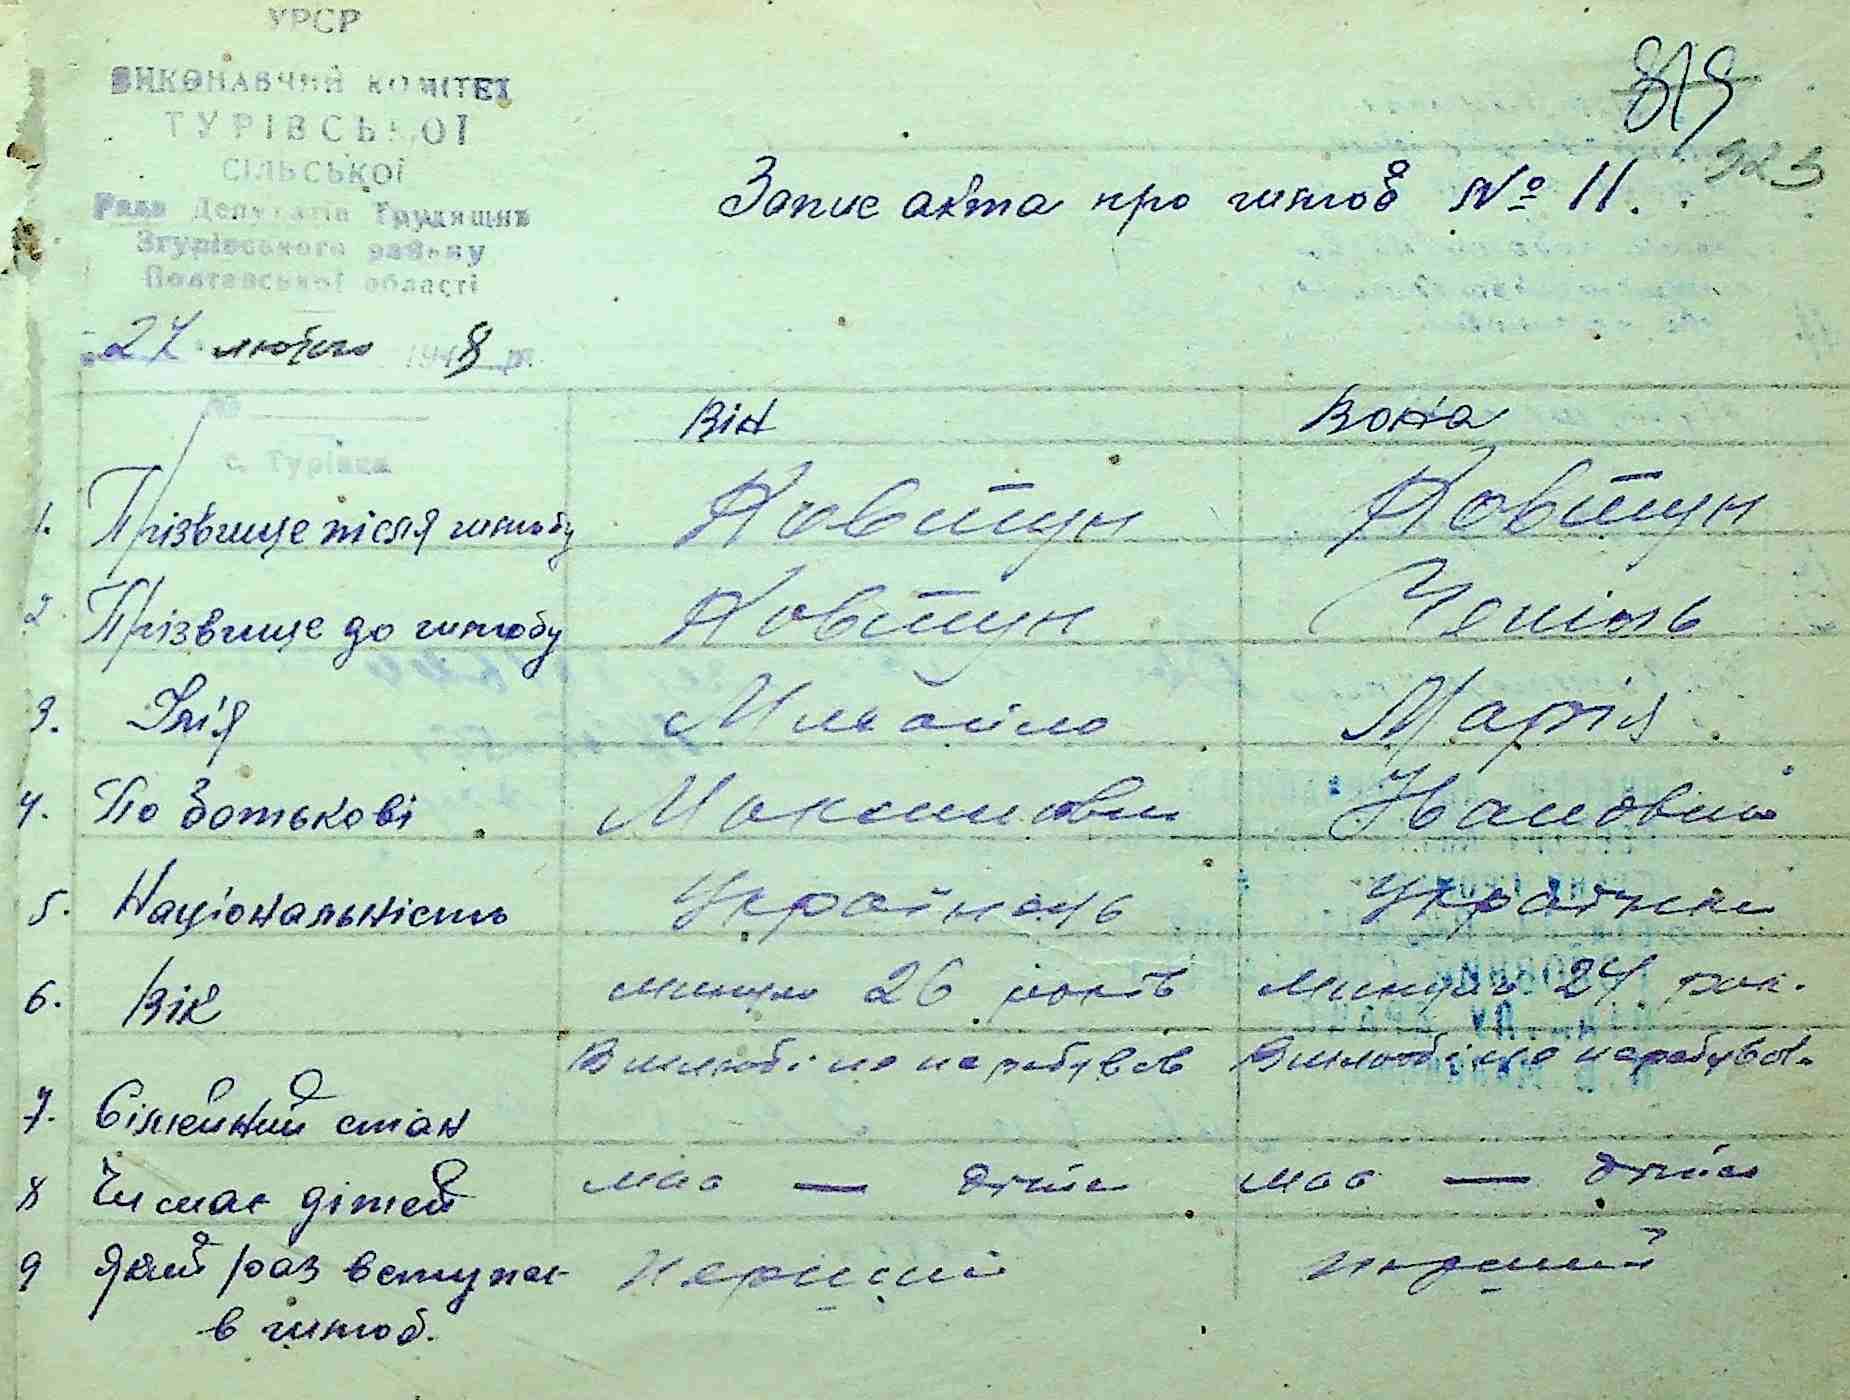 УРСР
ВИКОНАВЧИЙ КОМІТЕТ
ТУРІВСЬКОЇ
СІЛЬСЬКОЇ
Ради Депутатів Трудящих
Згурівського району
Полтавської області
819
923
Запис акта про шлюб № 11.
"27" лютого 1948 р.
№
с. Турівка
Він Вона
1. Прізвище після шлюбу Ковтун Ковтун
2. Прізвище до шлюбу Ковтун
3. Ім'я Михайло Марія
4. По батькові Максимович Іванович
5. Національність Українець Українка
6. Вік минуло 26 років минуло 24 рок.
7. Сімейний стан В шлюбі не перебував В шлюбі не перебувал.
8 Чи має дітей має — дітей має — дітей
9 Який раз вступає перший перший
в шлюб.